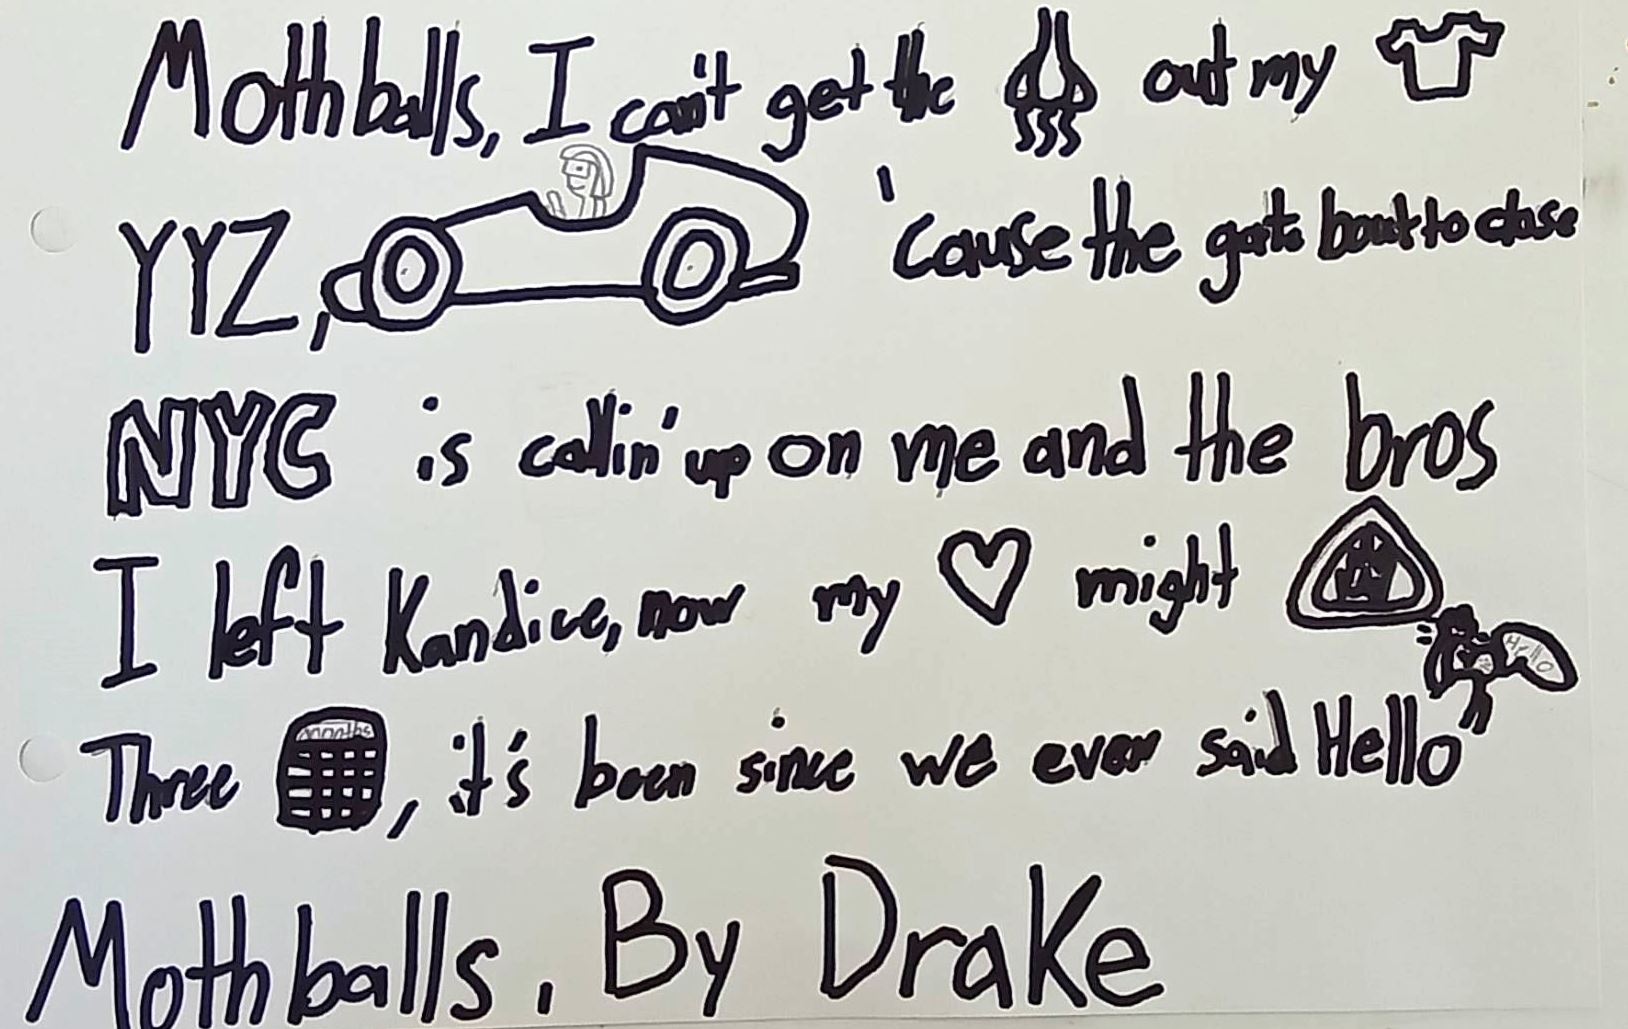 Mothballs, I can't get the out my
YYZ, 'cause the gate bout to close
NYC is callin' up on me and the bros
I left Kandice, now my might
Hello
Three months, it's been since we ever said Hello
Mothballs, By Drake